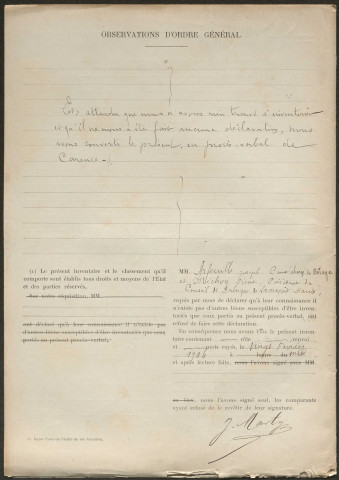 OBSERVATIONS D'ORDRE GÉNÉRAL
Et, attendu que nous n'avons rien trouvé à inventorier
et qu'il ne nous a été fait aucune déclaration, nous
avons converti le présent en procès-verbal de
Carence.
(1) Le présent inventaire et le classement qu'il
comporte sont établis tous droits et moyens de l'État
et des parties réservés.
Sur notre réquisition, MM.
ont déclaré qu'à leur connaissance il n'existe pas
d'autres biens susceptibles d'être inventoriés que ceux
portés au présent procès-verbal.
MM.
et Président du
Conseil de fabrique de
requis par nous de déclarer qu'à leur connaissance il
n'existe pas d'autres biens susceptibles d'être inven-
toriés que ceux portés au présent procès-verbal, ont
refusé de faire cette déclaration.
En conséquence nous avons clos le présent inven-
taire contenant rôle, renvoi
et mots rayés, le vingt
1906 à
et après lecture faite, nous l'avons signé avec MM.
nous l'avons signé seul, les comparants
ayant refusé de le revêtir de leur signature.